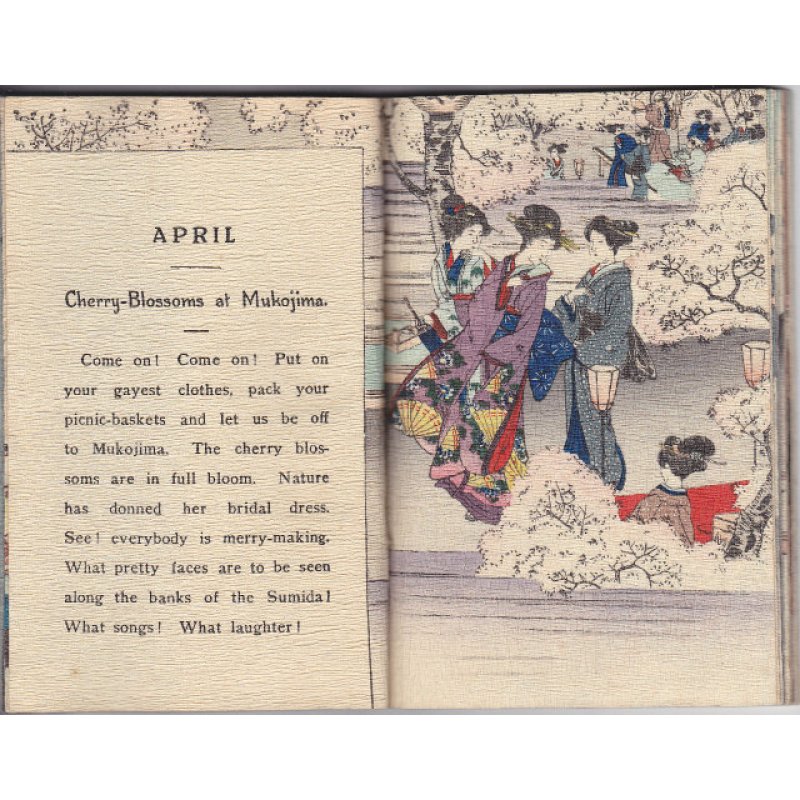 APRIL
Cherry-Blossoms at Mukojima.
Come on! Come on! Put on
your gayest clothes, pack your
picnic-baskets and let us be off
to Mukojima. The cherry blos-
soms are in full bloom. Nature
has donned her bridal dress.
See! everybody is merry-making.
What pretty faces are to be seen
along the banks of the Sumida!
What songs! What laughter!